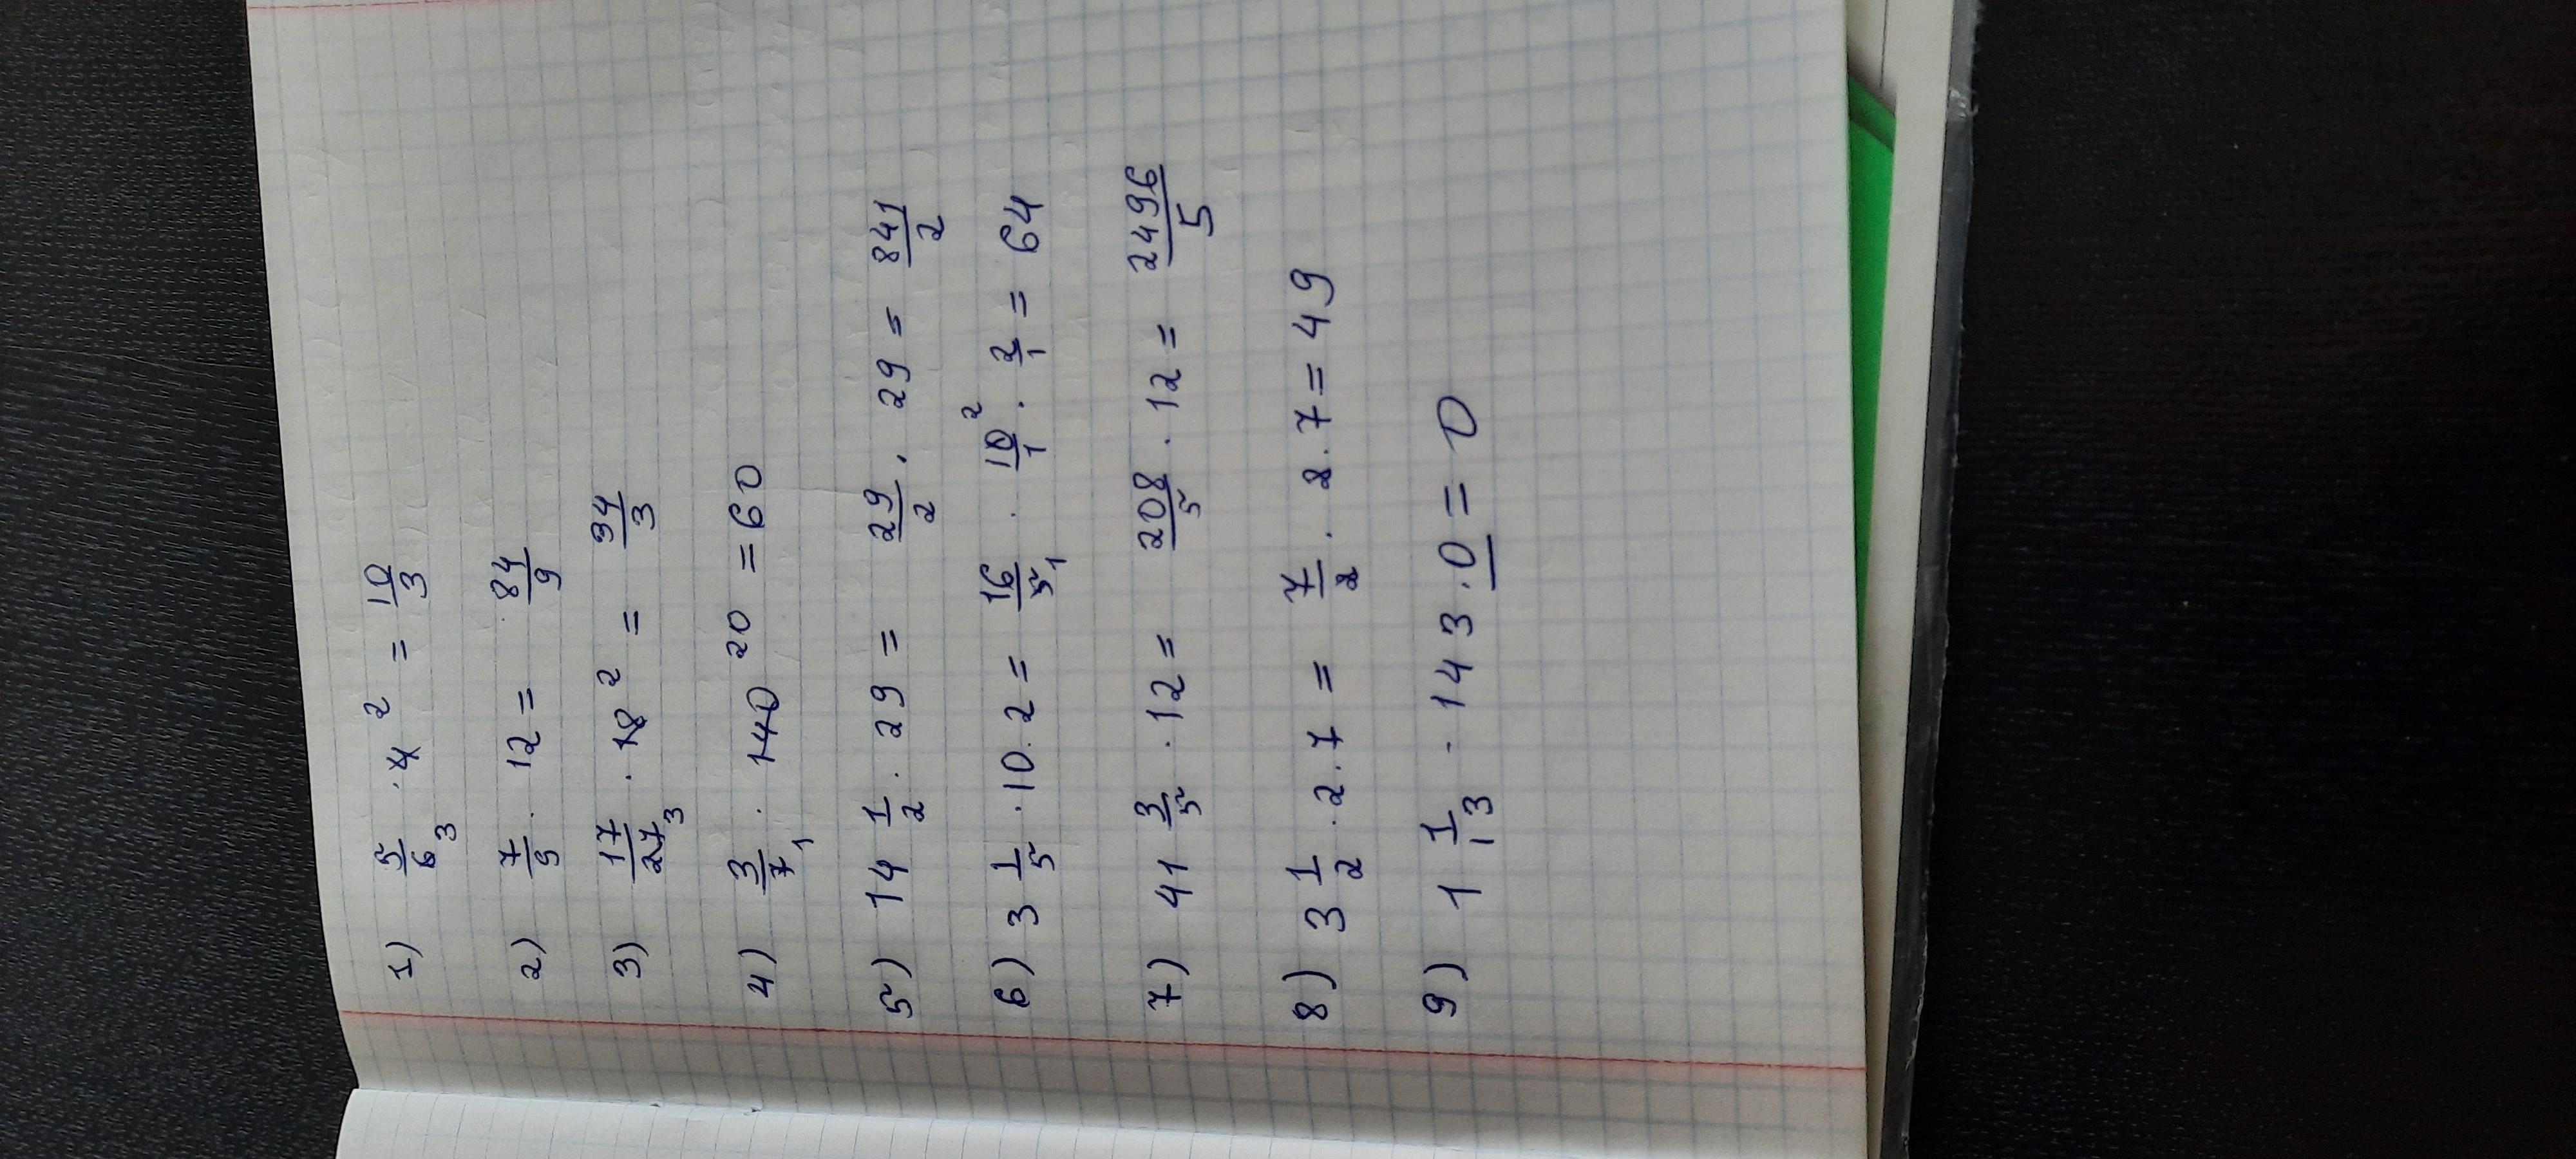 1) 5/6 3 · 4 2 = 10/3
2) 7/9 · 12 = 84/9
3) 17/27 3 · 18 2 = 34/3
4) 3/7 1 · 140 20 = 60
5) 14 1/2 · 29 = 29/2 · 29 = 841/2
6) 3 1/5 · 10 · 2 = 16/5 1 · 10/1 2 · 2/1 = 64
7) 41 3/5 · 12 = 208/5 · 12 = 2496/5
8) 3 1/2 · 2 · 7 = 7/2 · 2 · 7 = 49
9) 1 1/13 · 143 · 0 = 0